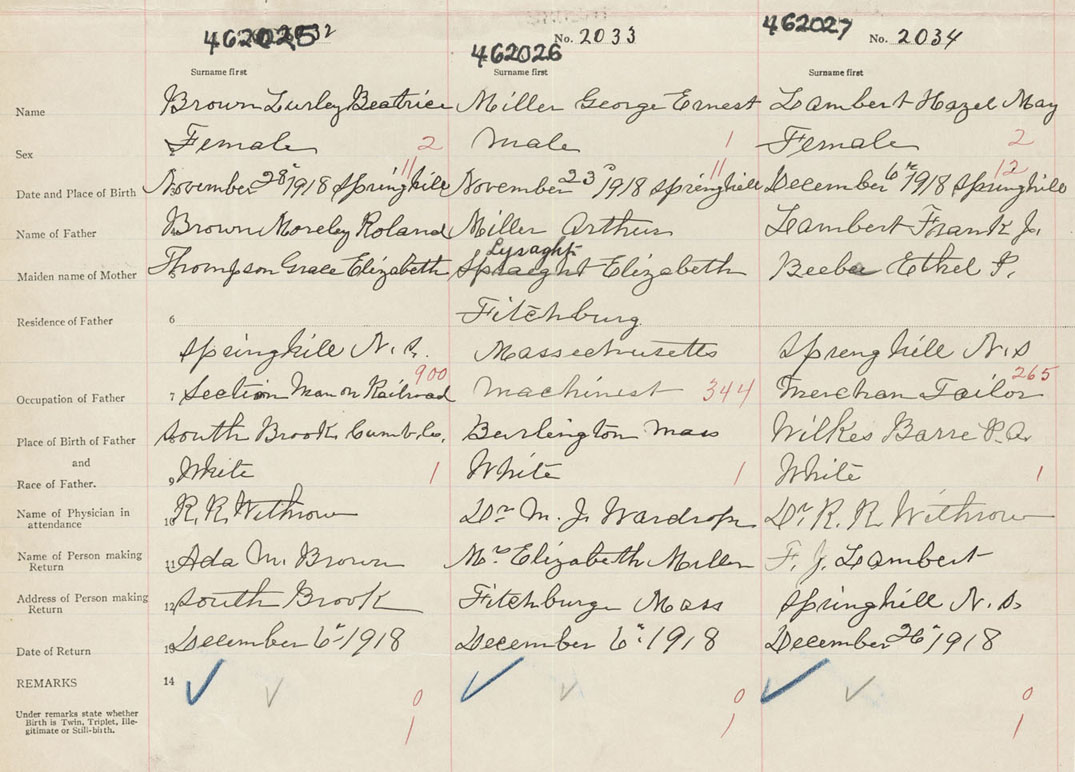 462025 32
462026 No. 2033
462027 No. 2034
Surname first Surname first Surname first
Name Brown Lurley Beatrice Miller George Ernest Lambert Hazel May
Sex Female 2 Male 1 Female 2
11 11 12
Date and Place of Birth November 28th 1918 Springhill November 23rd 1918 Springhill December 6th 1918 Springhill
Name of Father Brown Moreley Roland Miller Arthur Lambert Frank J.
Lysaght
Maiden name of Mother Thompson Grace Elizabeth Spraight Elizabeth Beebe Ethel P.
Fitchburg
Residence of Father 6
Springhill N.S. Massachusetts Springhill N.S
900 265
Occupation of Father 7 Section Man on Railroad Machinist 344 Merchan Tailor
Place of Birth of Father South Brook Cumb. Co. Burlington Mass Wilkes Barre P.A.
and
Race of Father. 9 White 1 White 1 White 1
Name of Physician in
attendance 10 R. R. Withrow Dr M. J. Wardrope Dr. R. R. Withrow
Name of Person making
Return 11 Ada M. Brown Mrs Elizabeth Miller F. J. Lambert
Address of Person making
Return 12 South Brook Fitchburg Mass Springhill N.S.
Date of Return 13 December 6th 1918 December 6th 1918 December 26th 1918
REMARKS 14
0 0 0
Under remarks state whether
Birth is Twin, Triplet, Ille-
gitimate or Still-birth.
1 1 1